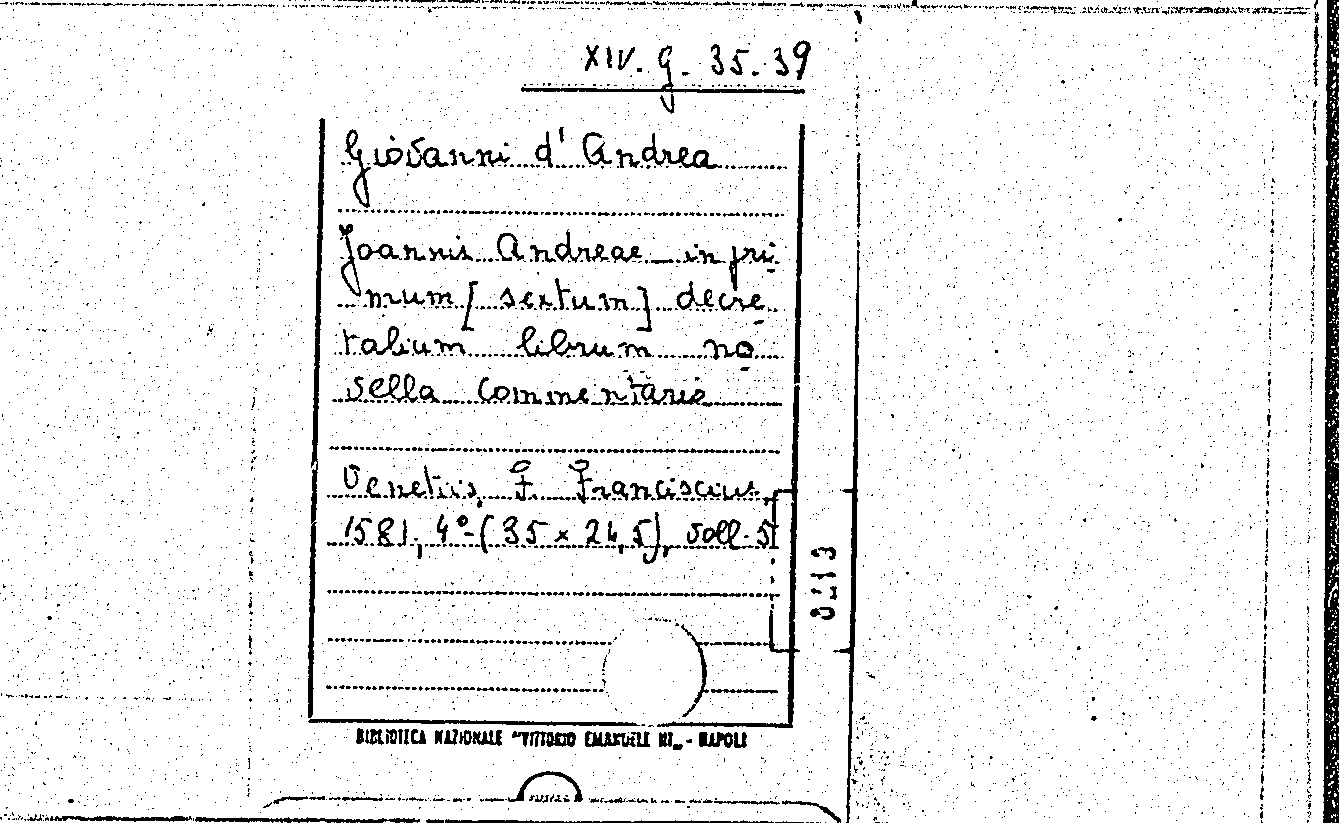 XIV. G. 35.39
Giovanni d' Andrea
Joannis Andreae in pri
mum [sextum] decre
talium librum no
vella commentaria
Venetiis, F. Franciscius,
1581, 4º (35 x 24,5), voll. 5
BIBLIOTECA NAZIONALE "VITTORIO EMANUELE III" - NAPOLI